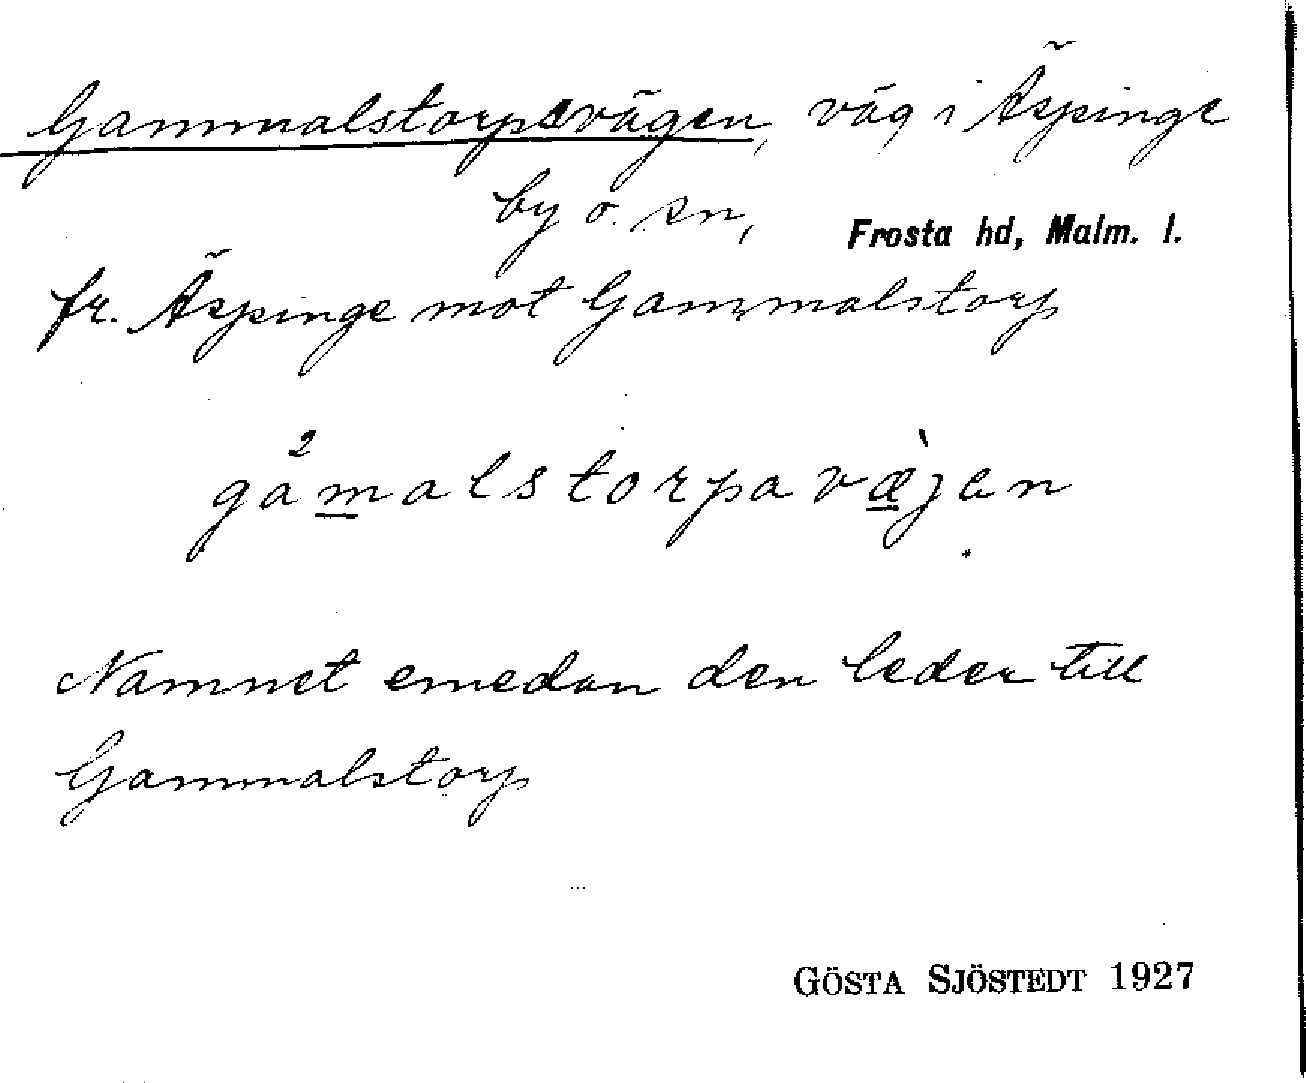 Gammalstorpsvägen, väg i Äspinge
by o. sn, Frosta hd, Malm. l.
fr. Äspinge mot Gammalstorp
gå²malstorpavæ̀jen
Namnet emedan den leder till
Gammalstorp
GÖSTA SJÖSTEDT 1927